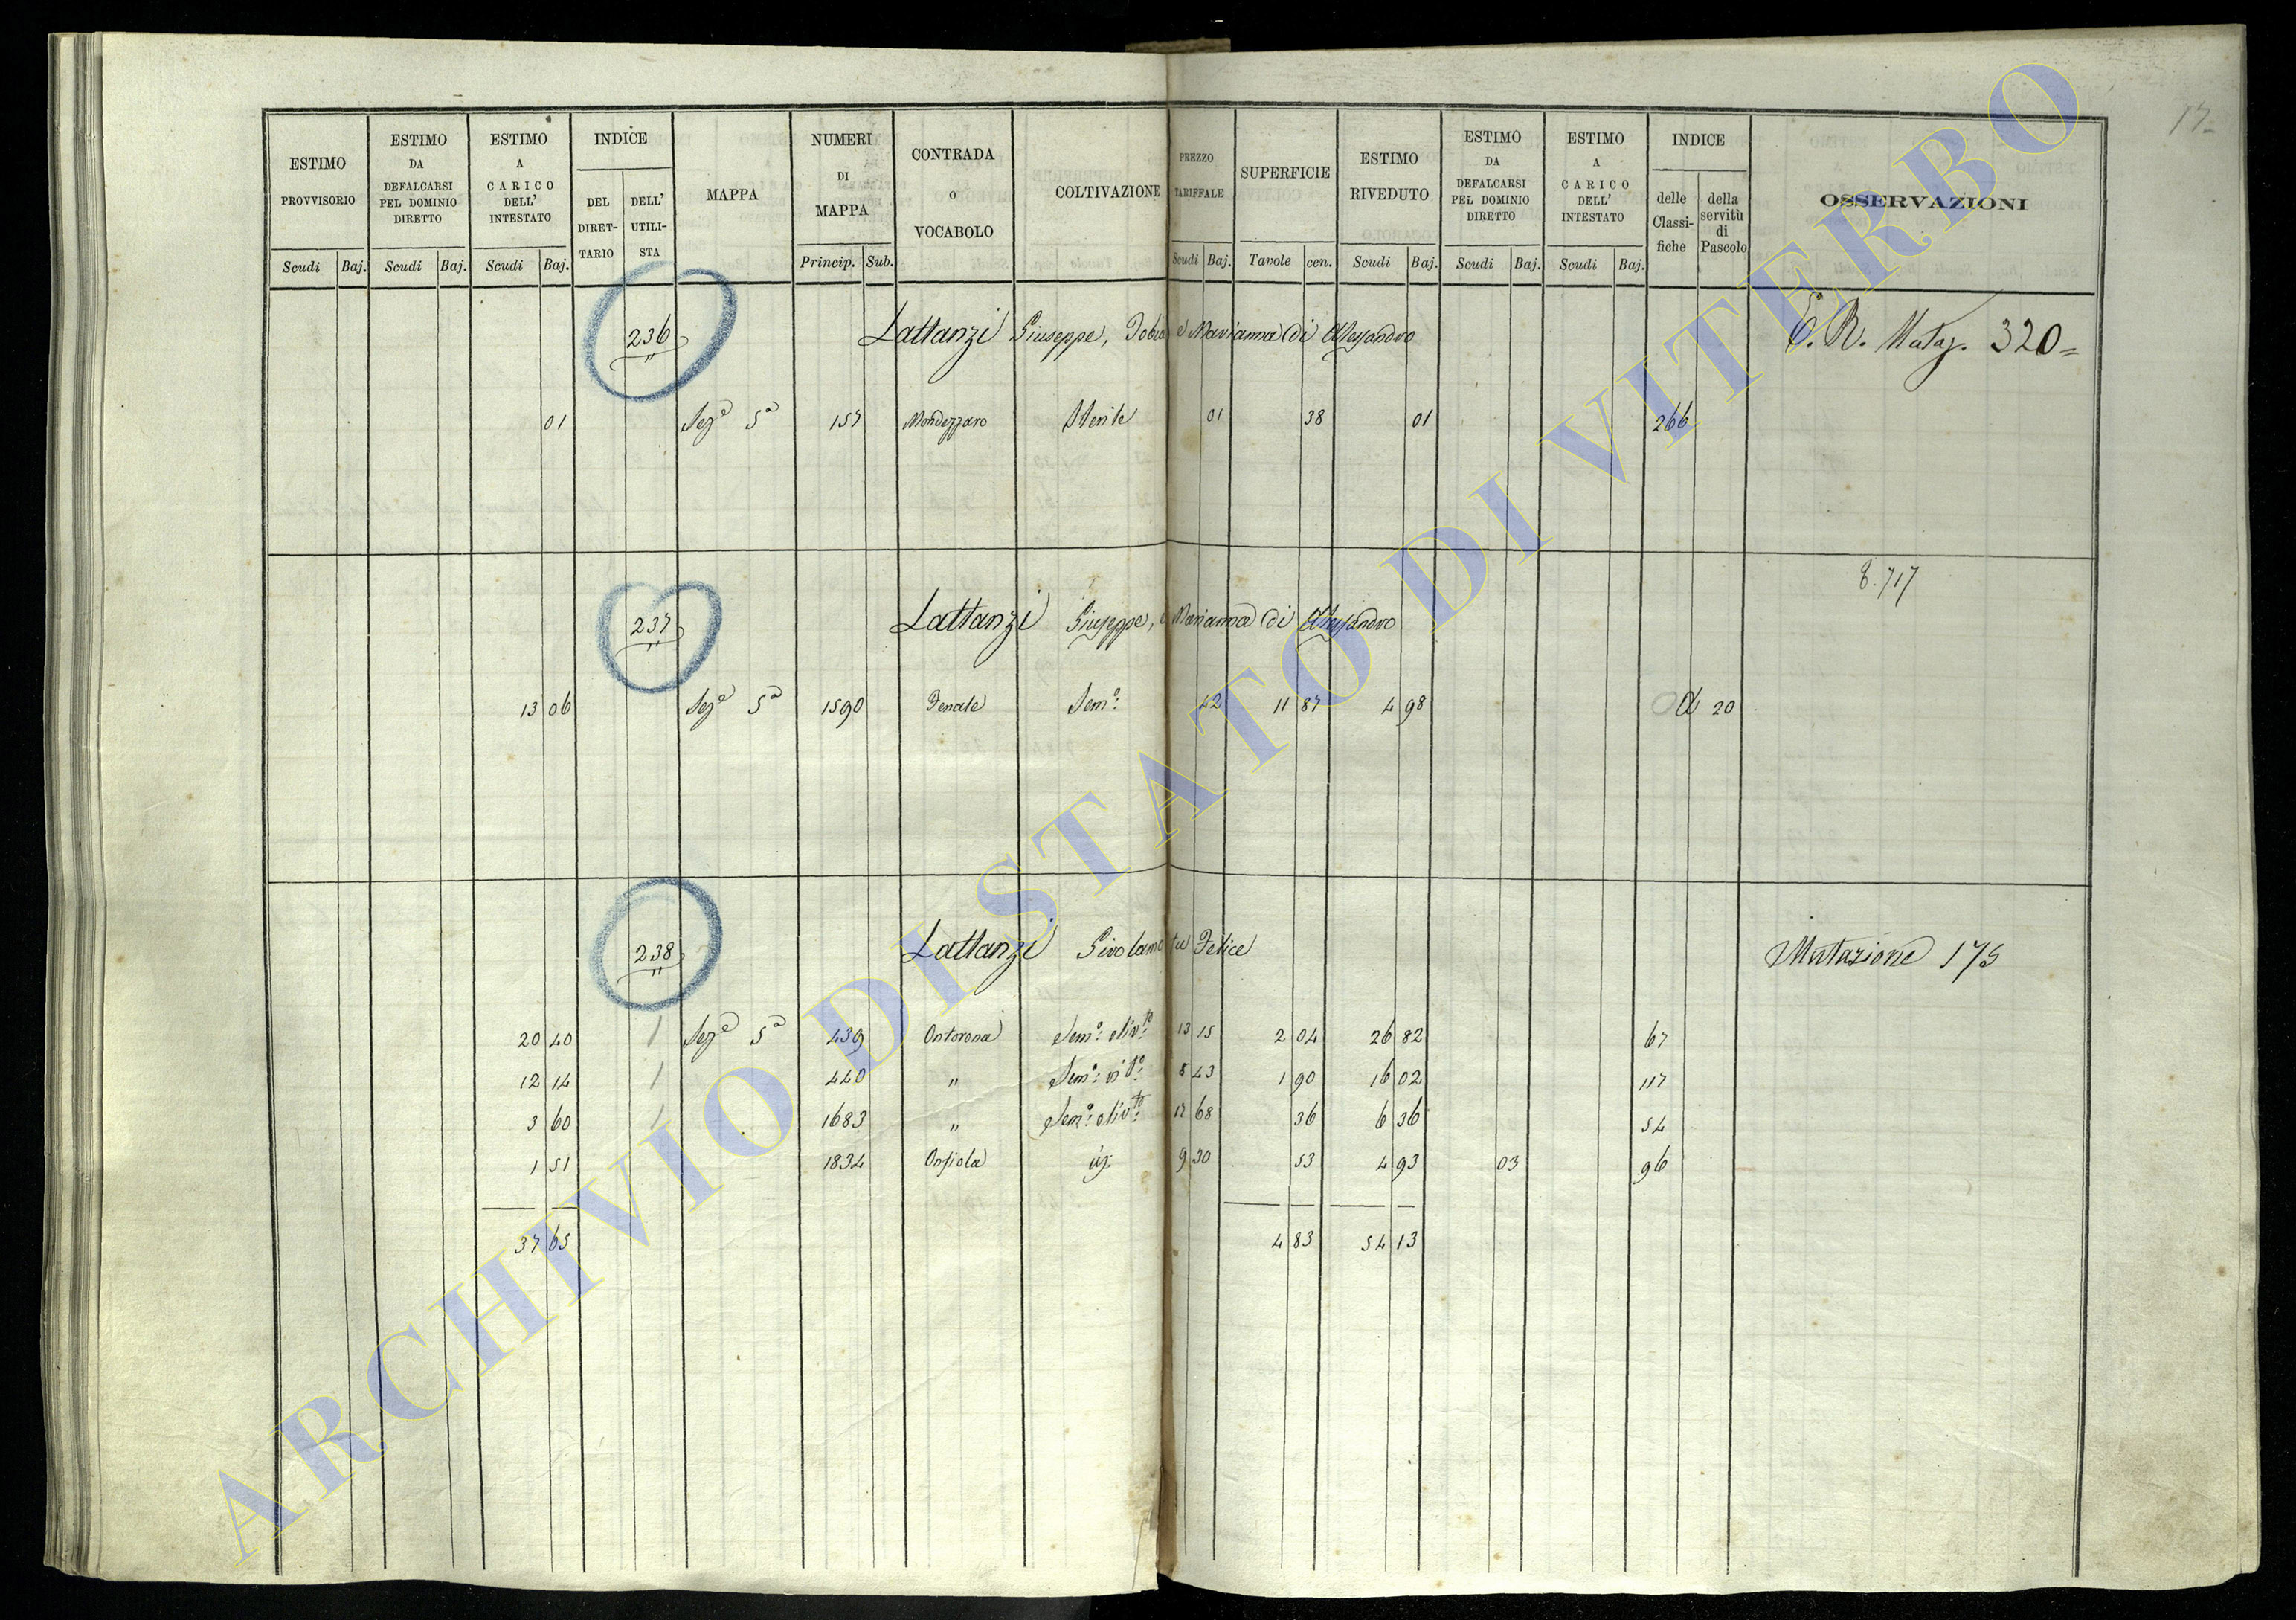 17
ESTIMO PROVVISORIO Scudi Baj.
ESTIMO DA DEFALCARSI PEL DOMINIO DIRETTO Scudi Baj.
ESTIMO A CARICO DELL' INTESTATO Scudi Baj.
INDICE DEL DIRET-TARIO DELL' UTILI-STA
MAPPA
NUMERI DI MAPPA Princip. Sub.
CONTRADA o VOCABOLO
COLTIVAZIONE
PREZZO TARIFFALE Scudi Baj.
SUPERFICIE Tavole cen.
ESTIMO RIVEDUTO Scudi Baj.
ESTIMO DA DEFALCARSI PEL DOMINIO DIRETTO Scudi Baj.
ESTIMO A CARICO DELL' INTESTATO Scudi Baj.
INDICE delle Classi-fiche della servitù di Pascolo
OSSERVAZIONI
236 Lattanzi Giuseppe, e Marianna di Alessandro 320
01 Sez.e 5a 157 Mondezzaro Sterile 01 38 01 266
717
237 Lattanzi Giuseppe, e Marianna di Alessandro
13 06 Sez.e 5a 1590 Fenale Sem.o 42 11 87 4 98 A 20
238 Lattanzi Girolamo fu Felice Mutazione 175
20 40 1 Sez.e 5a 439 Ontorona Sem.o oliv.to 13 15 2 04 26 82 67
12 14 1 440 " Sem.o vit.o 8 43 1 90 16 02 117
3 60 1 1683 " Sem.o oliv.to 17 68 36 6 36 54
1 51 1834 9 30 53 4 93 03 96
37 65 4 83 54 13
ARCHIVIO DI STATO DI VITERBO